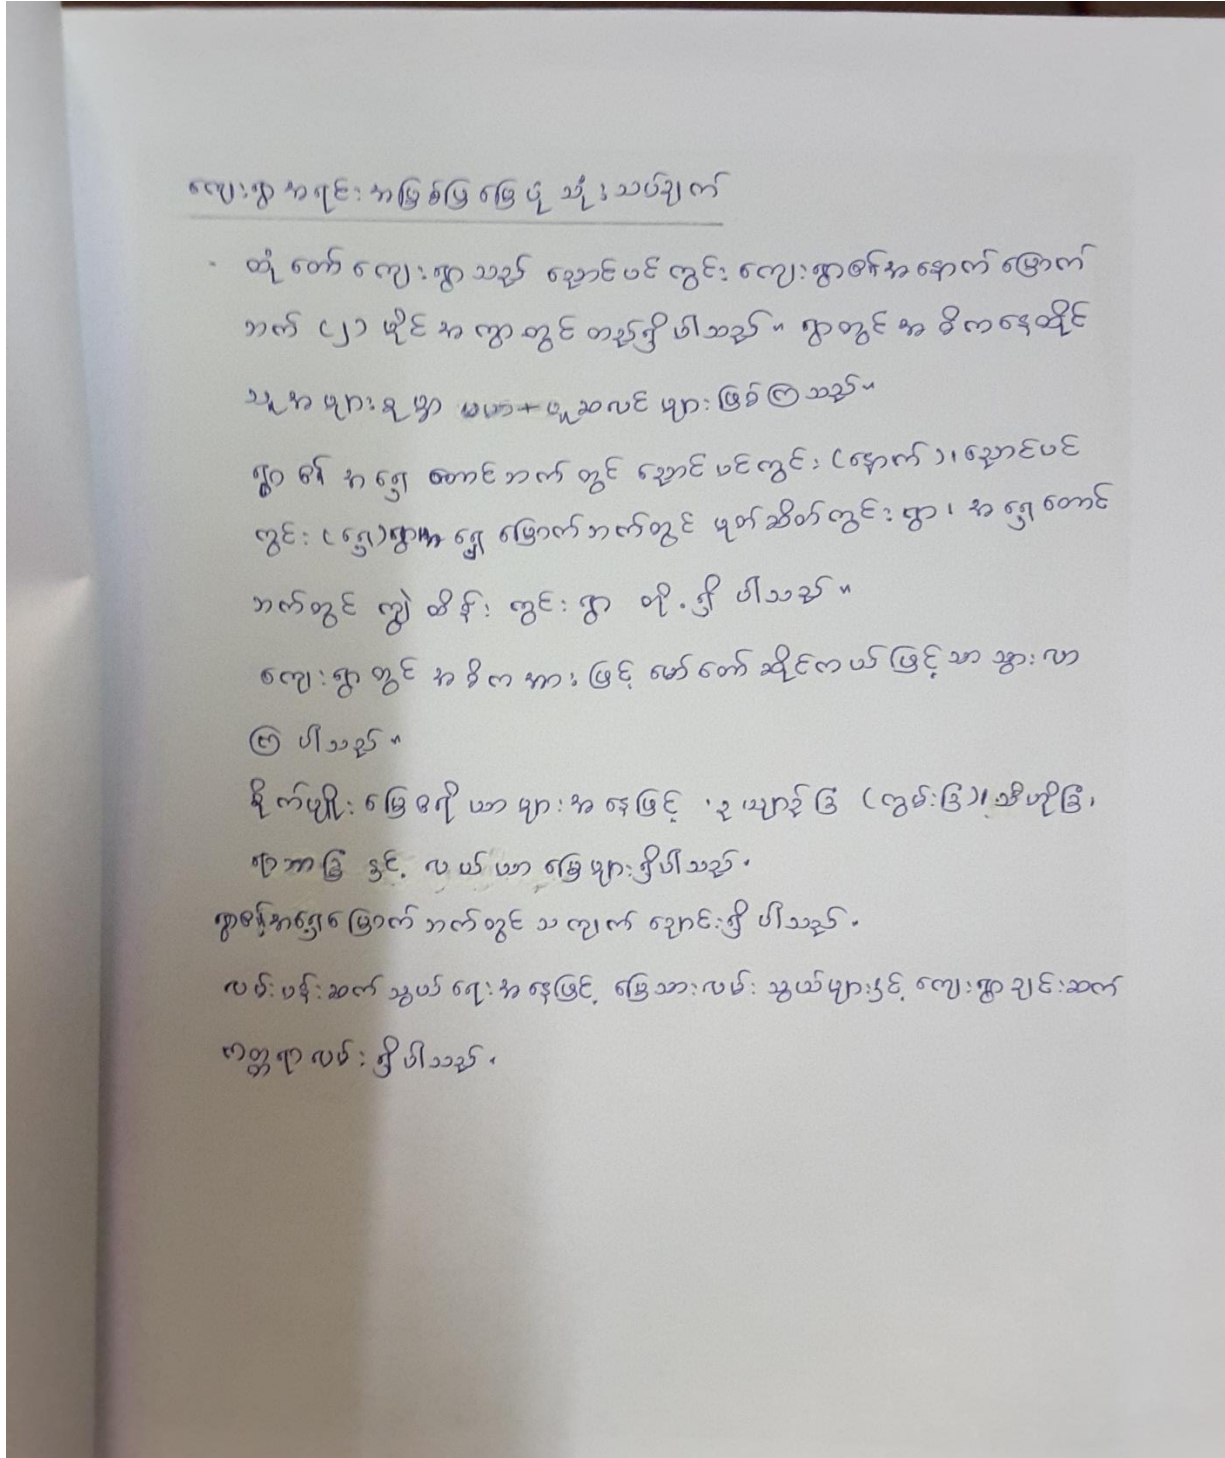 ကျေးရွာအရင်းအမြစ်ပြမြေပုံ သုံးသပ်ချက်
- ထုံတော်ကျေးရွာသည် ညောင်ပင်ကွင်း ကျေးရွာ၏အနောက်မြောက်
ဘက် (၂) မိုင်အကွာတွင် တည်ရှိပါသည်။ ရွာတွင် အဓိကနေထိုင်
သူအများစုမှာ မူဆလင်များဖြစ်ကြသည်။
ရွာ၏ အရှေ့တောင်ဘက်တွင် ညောင်ပင်ကွင်း (နောက်)၊ ညောင်ပင်
ကွင်း (ရှေ့)ရွာ၊ အရှေ့မြောက်ဘက်တွင် မုတ်ဆိတ်ကွင်းရွာ၊ အရှေ့တောင်
ဘက်တွင် ကျွဲထိန်းကွင်းရွာ တို့ရှိပါသည်။
ကျေးရွာတွင် အဓိကအားဖြင့် မော်တော်ဆိုင်ကယ်ဖြင့်သာ သွားလာ
ကြပါသည်။
စိုက်ပျိုးမြေဧရိယာများအနေဖြင့် ဥယျာဉ်ခြံ (ကွမ်းခြံ)၊ သီဟိုခြံ၊
ရာဘာခြံ နှင့် လယ်ယာမြေများရှိပါသည်။
ရွာ၏အရှေ့မြောက်ဘက်တွင် သကျက်ချောင်းရှိပါသည်။
လမ်းပန်းဆက်သွယ်ရေးအနေဖြင့် မြေသားလမ်းသွယ်များနှင့် ကျေးရွာချင်းဆက်
ကတ္တရာလမ်းရှိပါသည်။